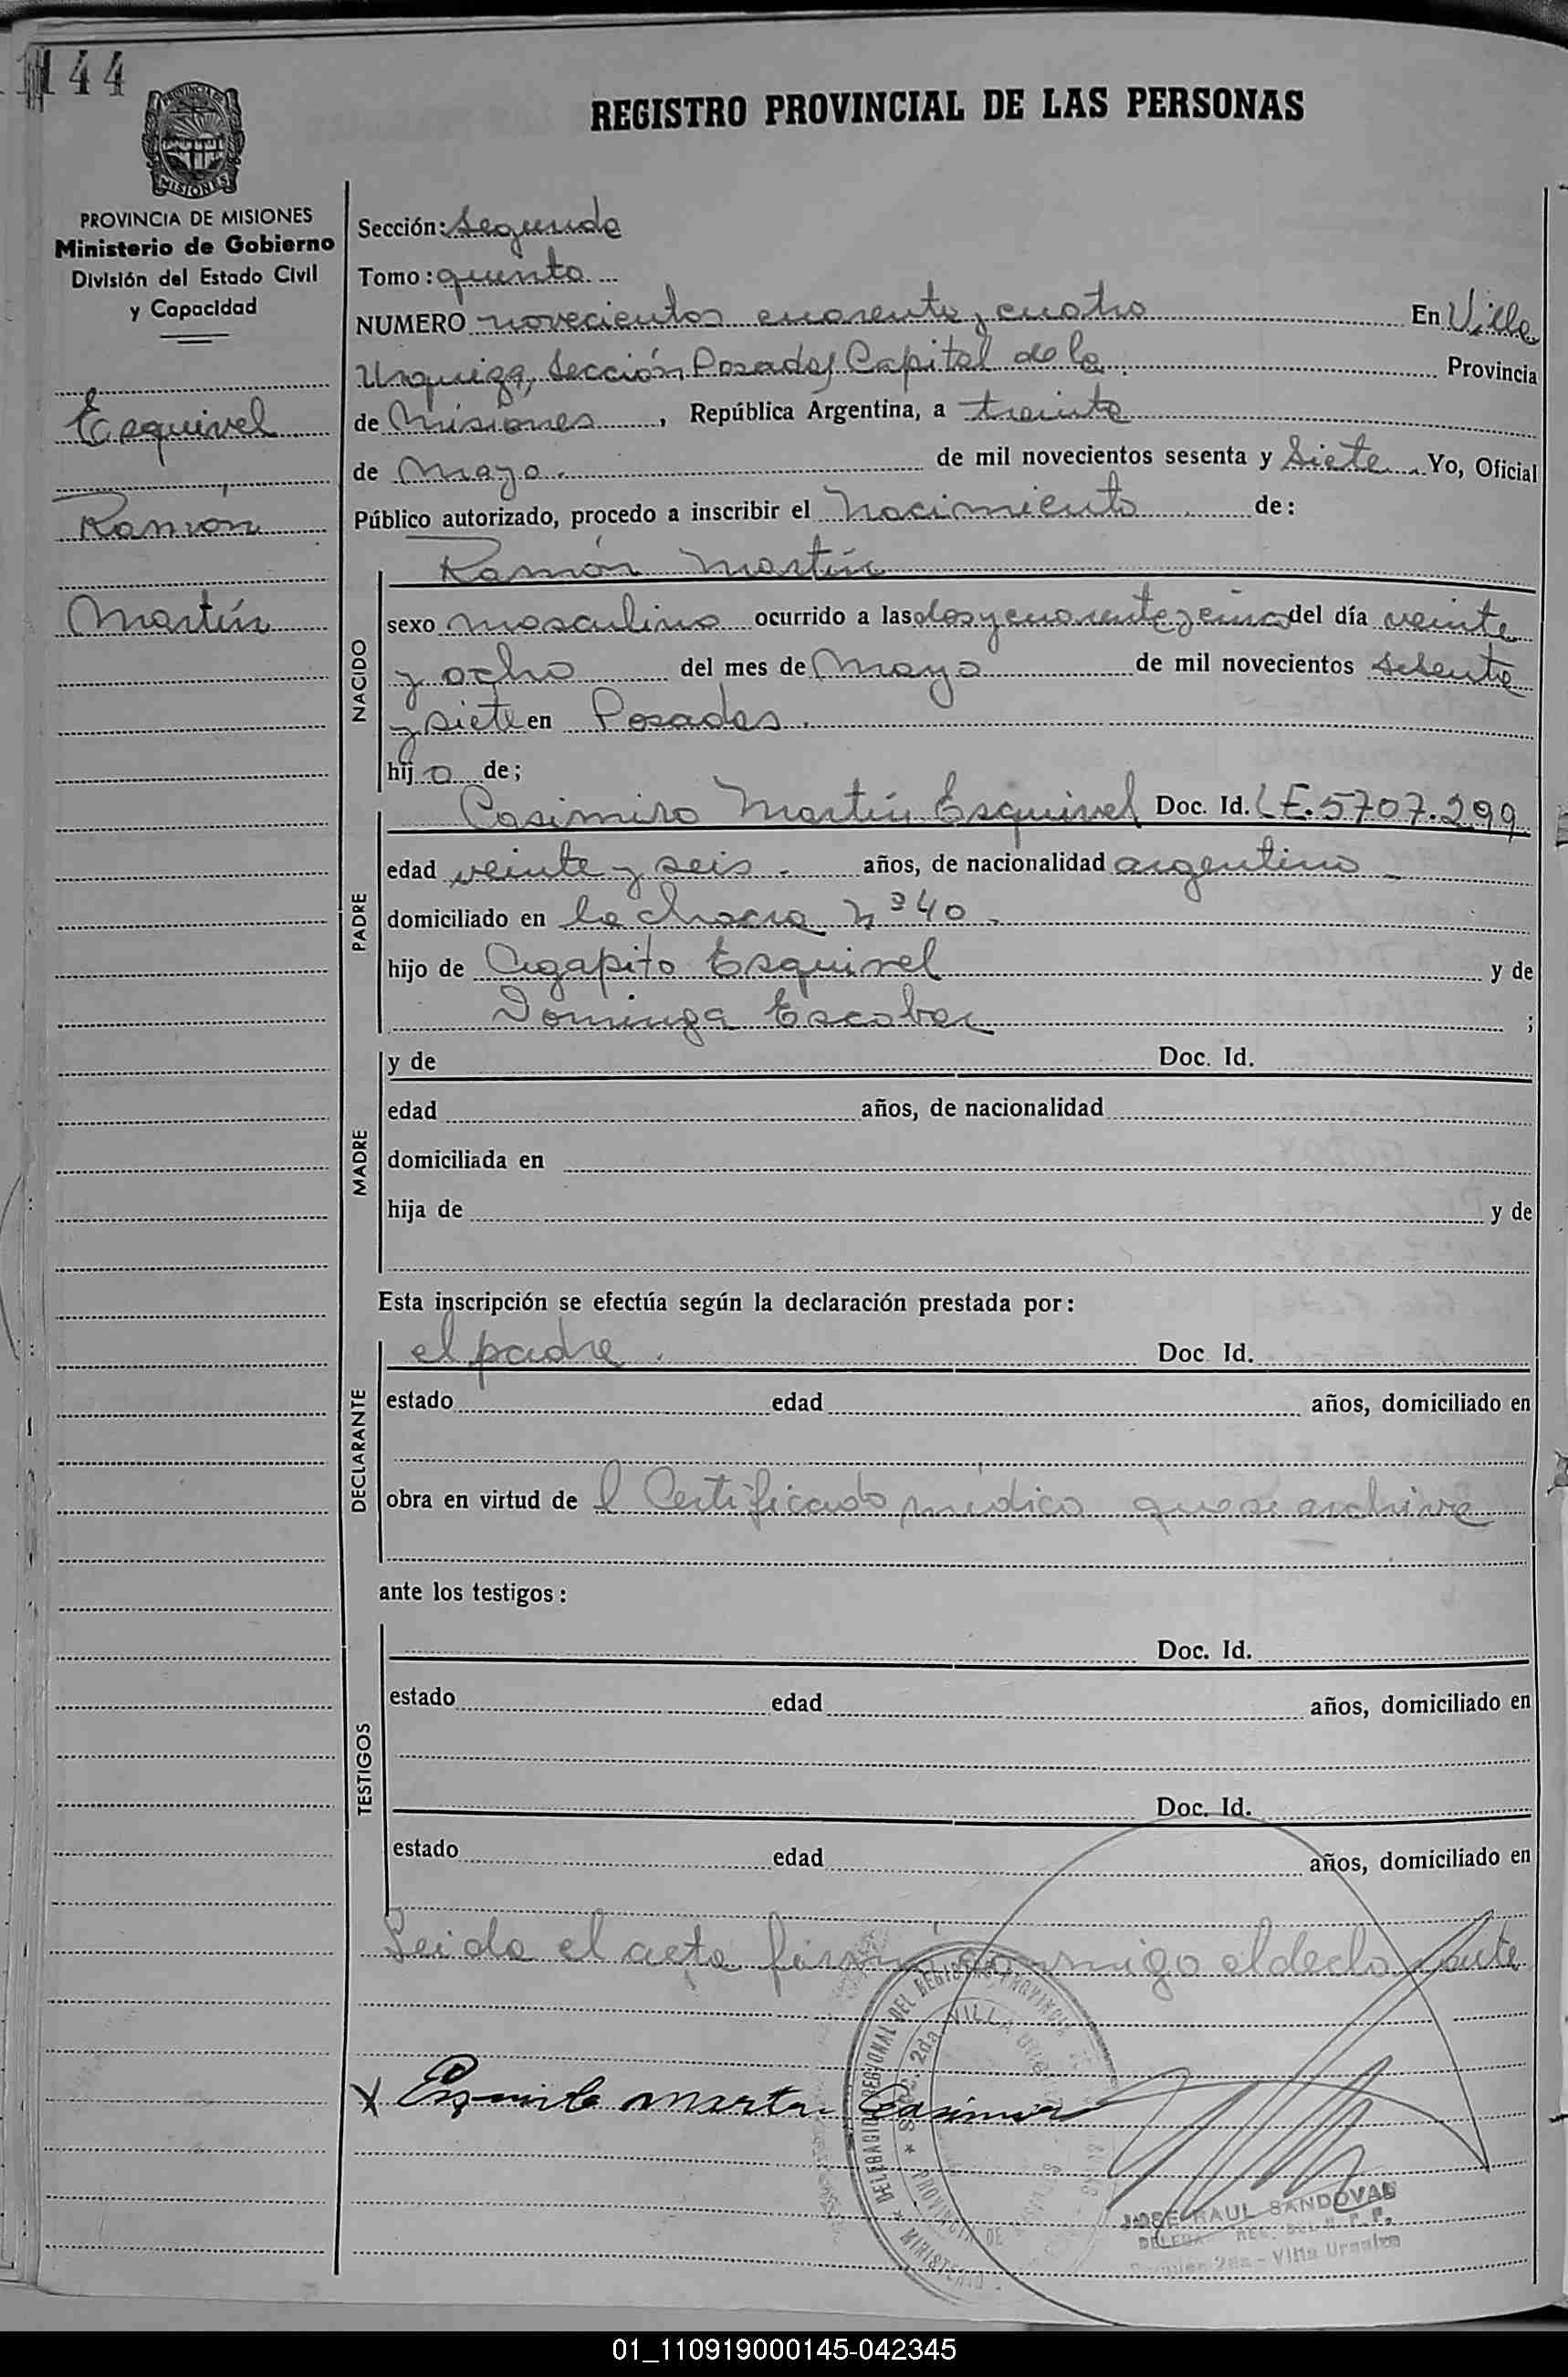 144
REGISTRO PROVINCIAL DE LAS PERSONAS
MISIONES
PROVINCIA DE MISIONES
Ministerio de Gobierno
División del Estado Civil
y Capacidad
Esquivel
Ramón
Martín
Sección: Segunda
Tomo: quinto
NUMERO novecientos cuarenta y cuatro En Villa
Urquiza, Sección Posadas Capital de la Provincia
de Misiones, República Argentina, a treinta
de Mayo. de mil novecientos sesenta y Siete. Yo, Oficial
Público autorizado, procedo a inscribir el Nacimiento de:
Ramón Martín
NACIDO
sexo masculino ocurrido a las dos y cuarenta y cinco del día veinte
y ocho del mes de Mayo de mil novecientos sesenta
y siete en Posadas.
hijo de;
PADRE
Casimiro Martín Esquivel Doc. Id. L.E. 5707.299
edad veinte y seis. años, de nacionalidad argentino
domiciliado en la chacra Nº 40.
hijo de Agapito Esquivel y de
Dominga Escobar ;
MADRE
y de Doc. Id.
edad años, de nacionalidad
domiciliada en
hija de y de
Esta inscripción se efectúa según la declaración prestada por:
DECLARANTE
el padre. Doc. Id.
estado edad años, domiciliado en
obra en virtud de l Certificado médico que se archiva
ante los testigos:
TESTIGOS
Doc. Id.
estado edad años, domiciliado en
Doc. Id.
estado edad años, domiciliado en
Leida el acta firma conmigo el declarante
DELEGACION REGIONAL DEL REGISTRO PROVINCIAL
2da. VILLA
PROVINCIA DE
MINISTERIO
X Martin Casimiro
JOSE RAUL SANDOVAL
2da - Villa Urquiza
01_110919000145-042345